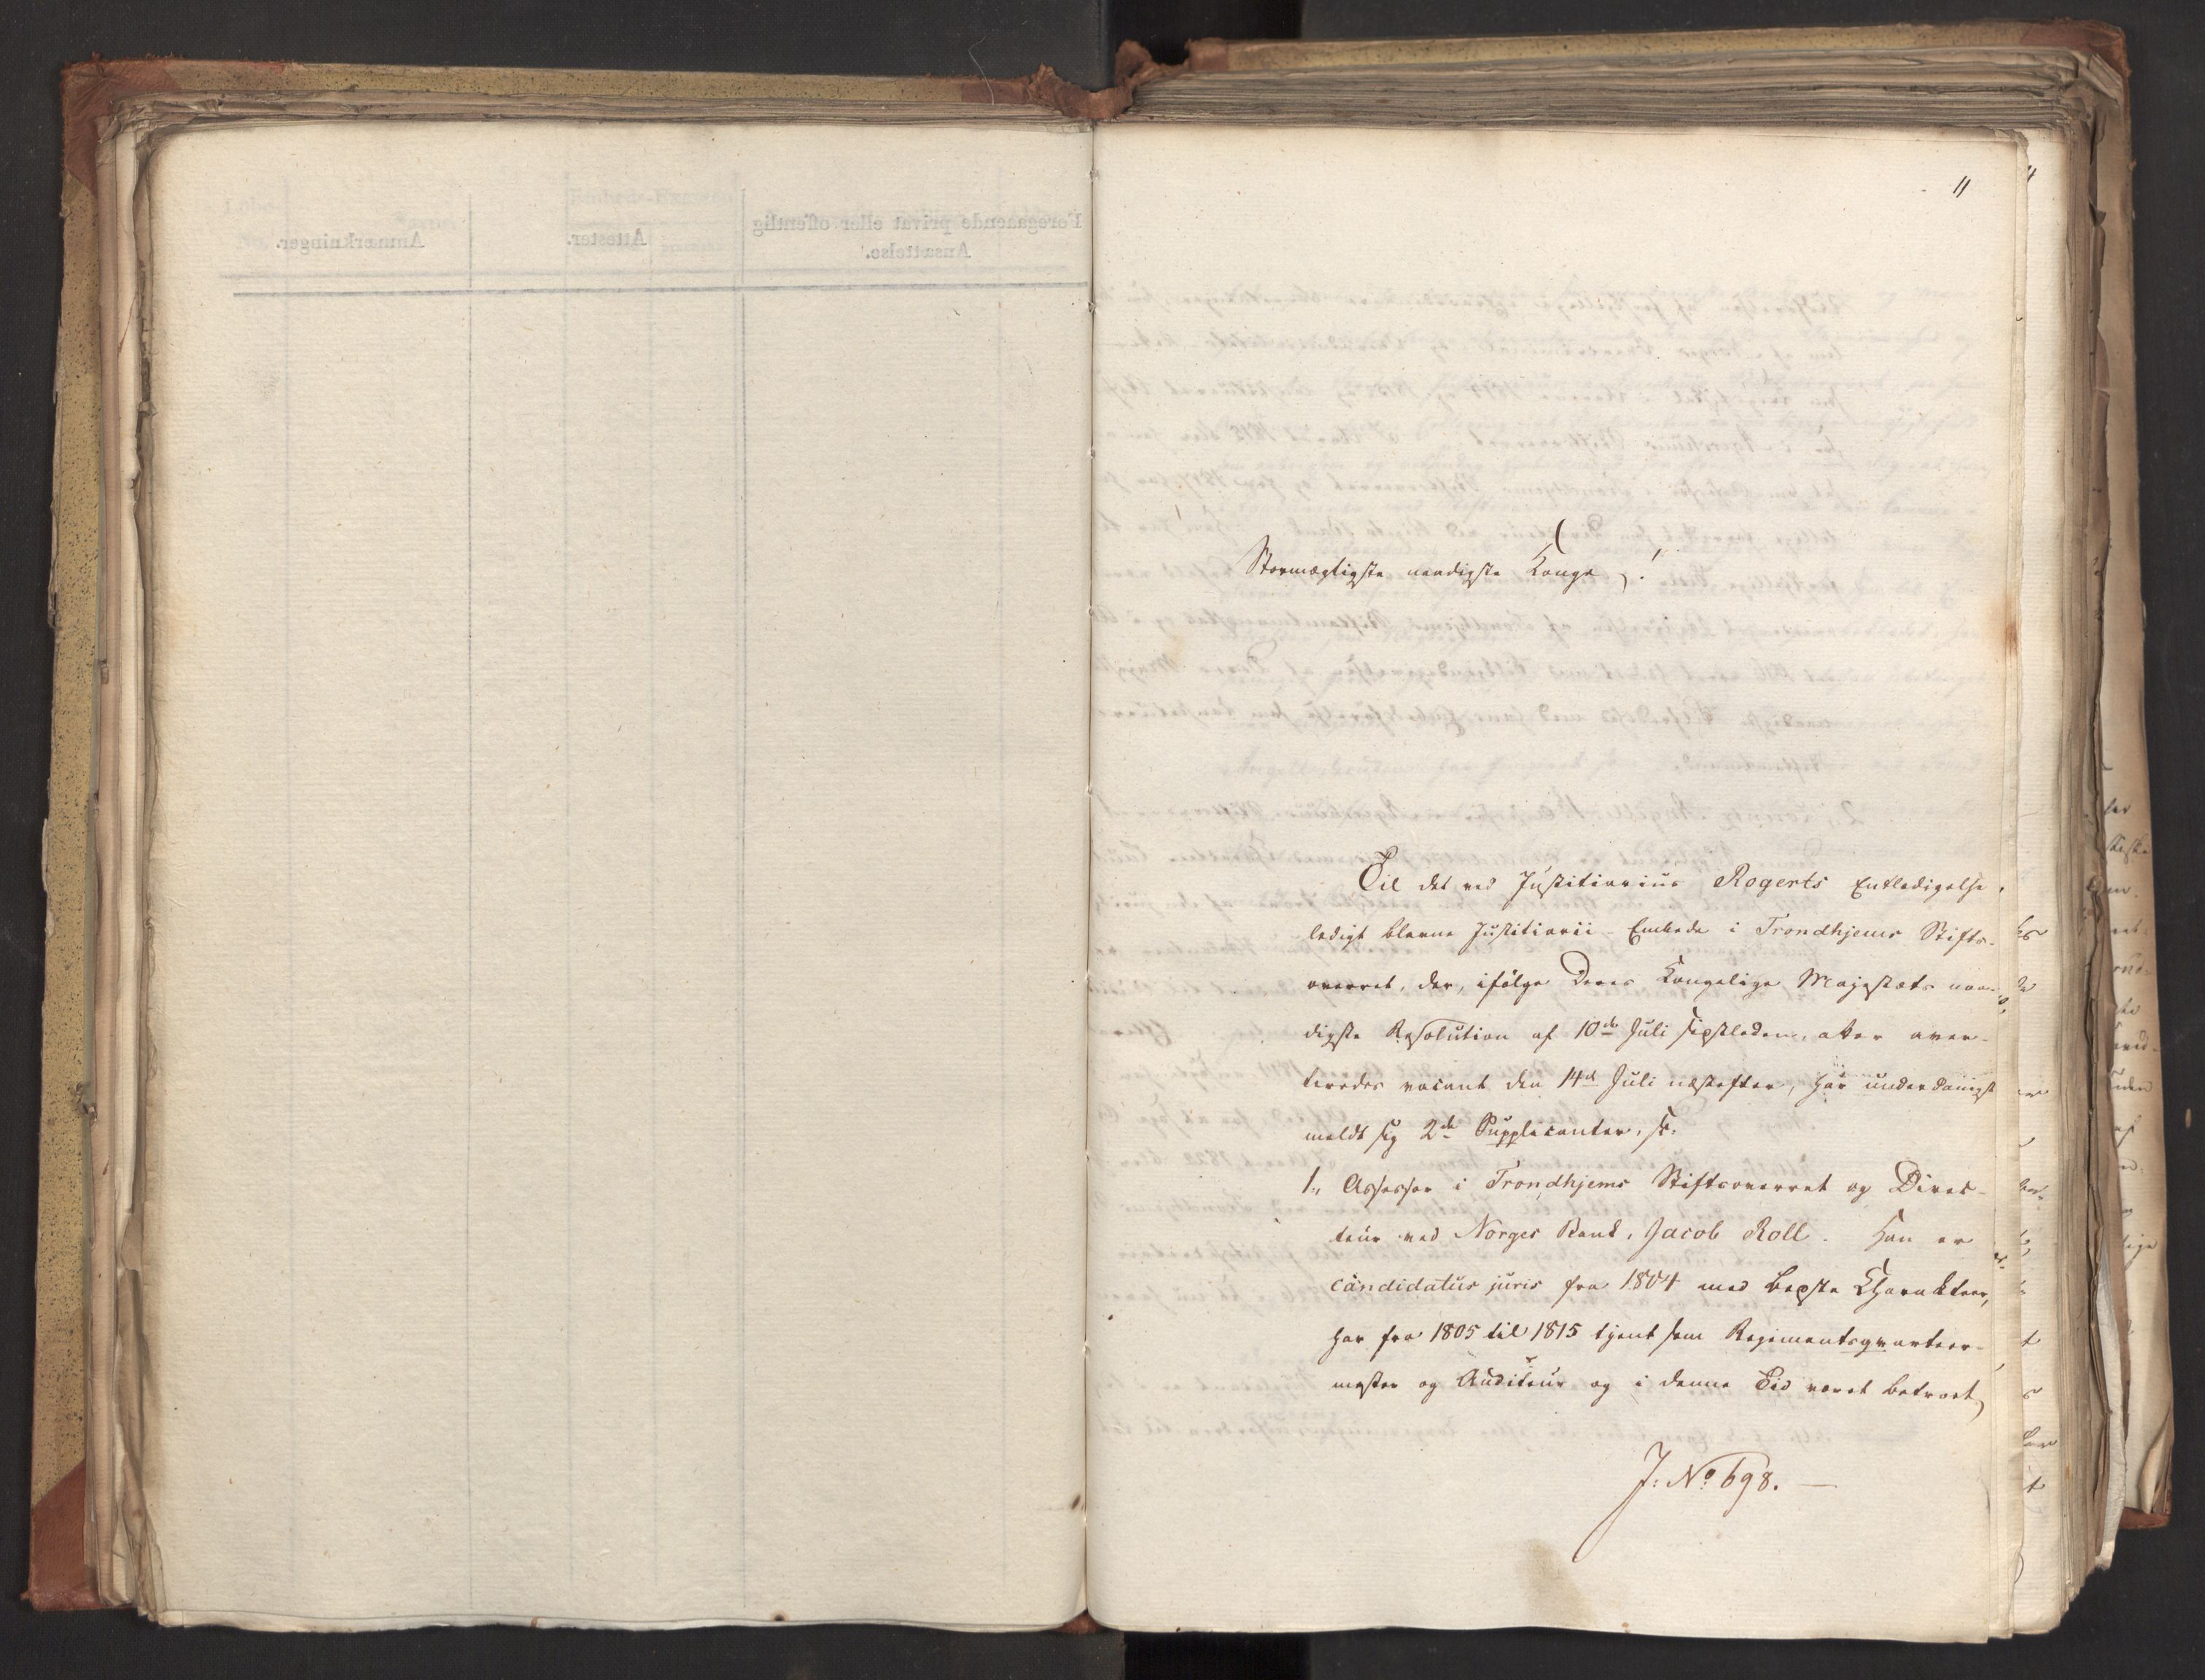 11
Stormægtigste naadigste Konge!
Til det ved Justitiarius Rogerts Entledigelse
ledigt blevne Justitiarii-Embede i Trondhjems Stifts-
overret, der, ifølge Deres Kongelige Majestæts naa-
digste Resolution af 10de Juli sistleden, ater aver-
teredes vacant den 14de Juli næstefter, har underdanigst
meldt sig 2de Supplicanter, sc:
1, Assessor i Trondhjems Stiftsoverret og Direc-
teur ved Norges Bank, Jacob Roll. Han er
candidatus juris fra 1804 med beste Charakteer,
har fra 1805 til 1815 tjent som Regimentsqvarteer-
mester og Auditeur og i denne Tid været betroet
J: No 698.